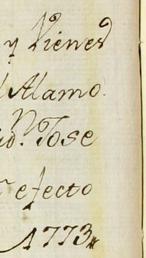 y Vienes
Alamo.
Dn. Jose
efecto
1773.